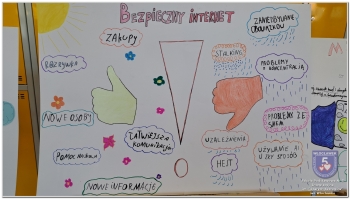 BEZPIECZNY INTERNET
ZAKUPY
ROZRYWKA
NOWE OSOBY
POMOC NAUKOWA
ŁATWIEJSZA
KOMUNIKACJA
NOWE INFORMACJE
STALKING
ZANIEDBYWANIE
OBOWIĄZKÓW
PROBLEMY
Z KONCENTRACJĄ
UZALEŻNIENIA
HEJT
PROBLEMY ZE
SNEM
UŻYWANIE AI
W ZŁY SPOSÓB
5